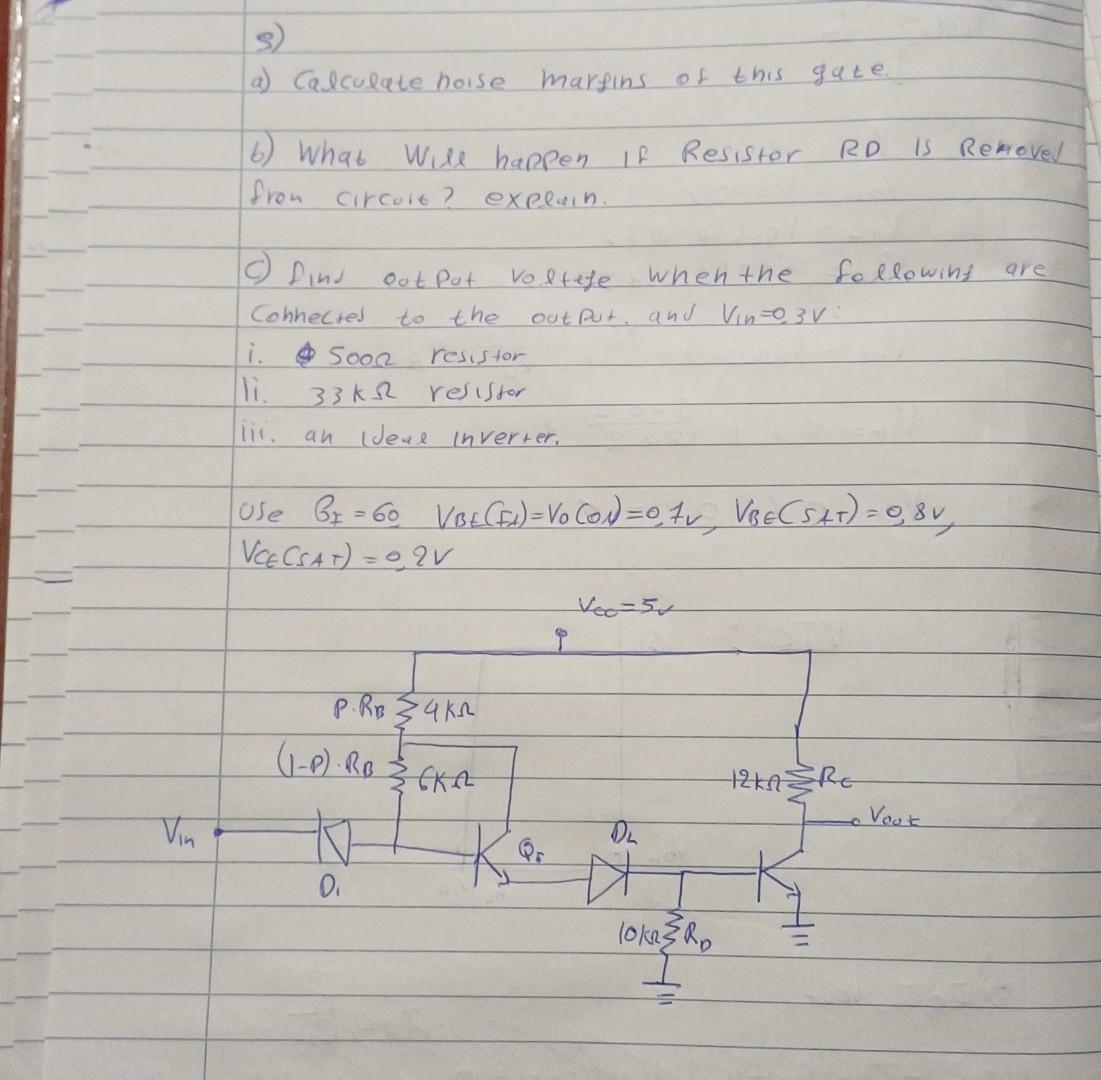 3)
a) Calculate noise margins of this gate.
b) What Will happen if Resistor RD Is Removed
from circuit? explain.
c) Find output voltage when the following are
Connected to the output. and Vin=0,3V:
i. 500Ω resistor
ii. 33kΩ resistor
iii. an Ideal Inverter.
Use βF=60 VBE(FA)=VD(ON)=0,7V, VBE(SAT)=0,8V,
VCE(SAT)=0,2V
Vcc=5V
P.RB 4kΩ
(1-P).RB 6kΩ
12kΩ RC
Vout
Vin
D1
DL
10kΩ RD